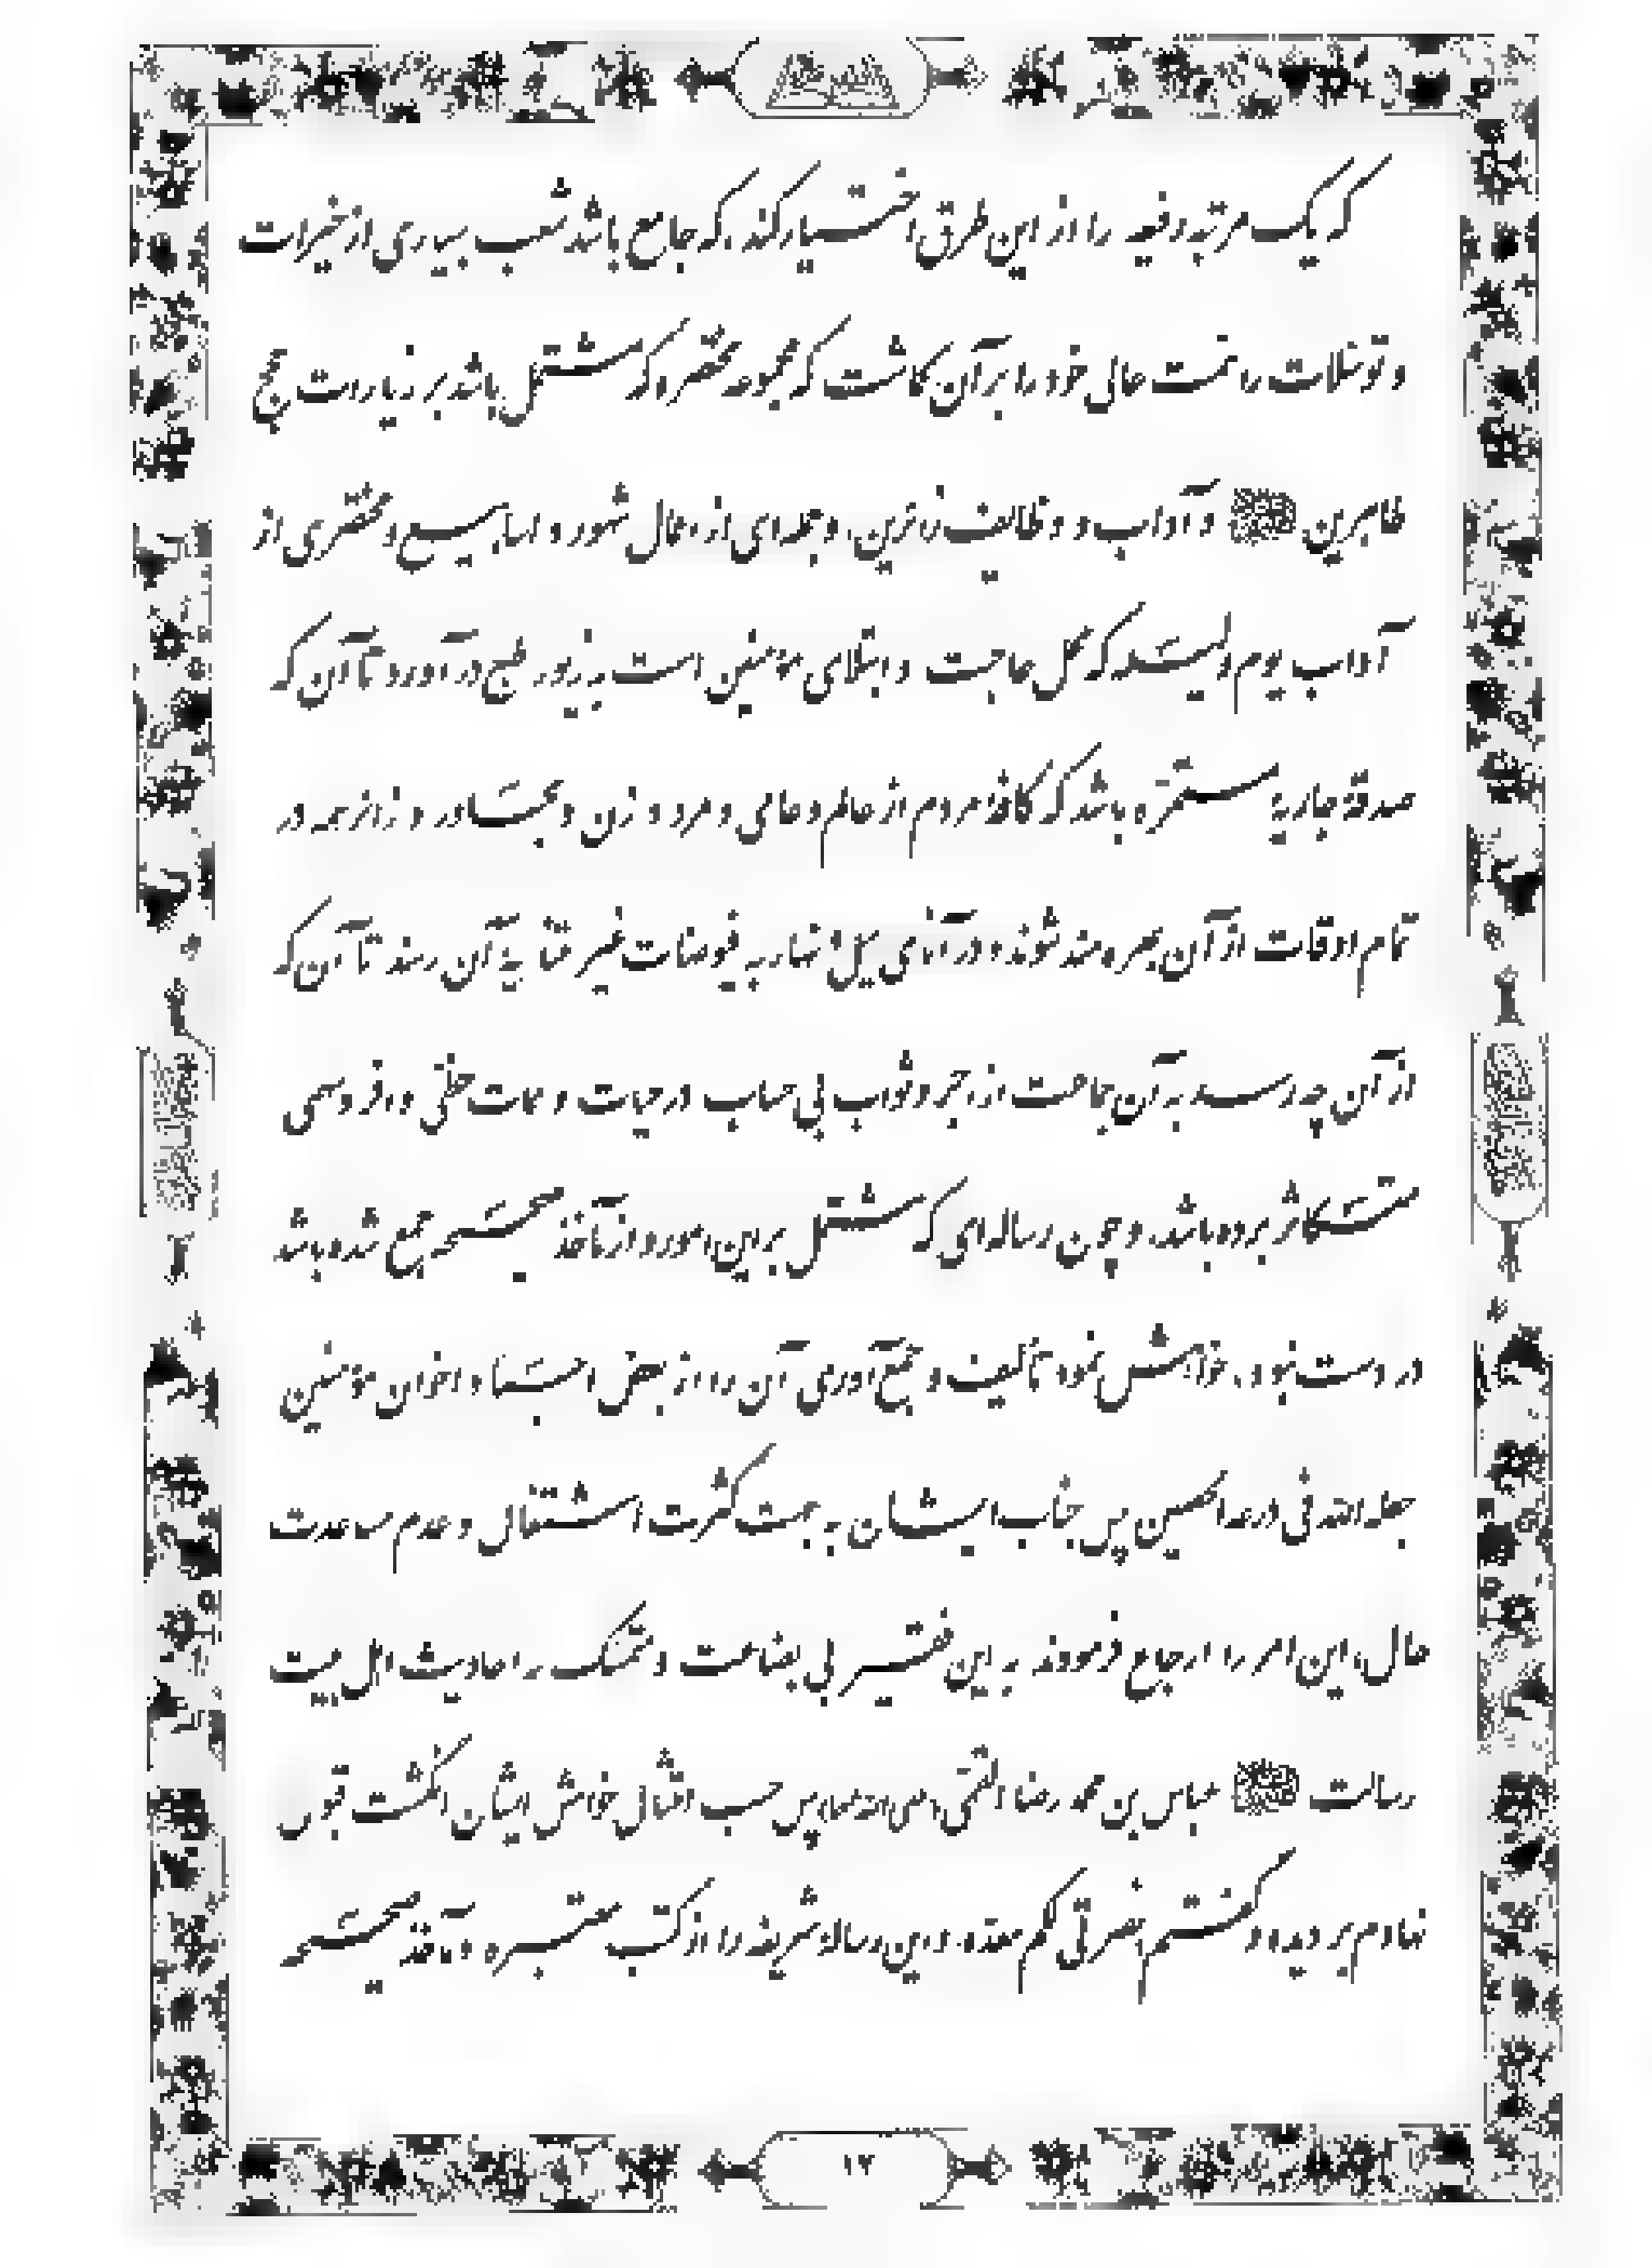 که یک مرتبه رفیعه را از این طرق اختیار کند، که جامع باشد شعب بسیاری از خیرات
و توسّلات را، همّت عالی خود را بر آن گماشت که مجموعه مختصره که مشتمل باشد بر زیارات حجج
طاهرین و آداب و وظایف زائرین، و جمله‌ای از اعمال شهور و اسابیع و مختصری از
آداب یوم و لیله که محل حاجت و ابتلای مؤمنین است به زیور طبع درآورد تا آن که
صدقهٔ جاریهٔ مستمرّه باشد که کافّهٔ مردم از عالم و عامی و مرد و زن و مجاور و زائر همه در
تمام اوقات از آن بهره‌مند شوند و در آنای لیل و نهار به فیوضات غیر متناهیهٔ آن رسند تا آن که
از آن چه رسد به آن جماعت از اجر و ثواب بی حساب در حیات و ممات حظّی وافر و سهمی
متکاثر برده باشد، و چون رساله‌ای که مشتمل بر این امور و از مآخذ صحیحه جمع شده باشد
در دست نبود، خواهش نمود تألیف و جمع‌آوری آن را از بعض احبّا و اخوان مؤمنین
جعله الله فی درعه الحصین پس جناب ایشان به جهت کثرت اشتغال و عدم مساعدت
حال، این امر را ارجاع فرمودند به این فقیر بی بضاعت و متمسّک به احادیث اهل بیت
رسالت عباس بن محمد رضا القمّی پس حسب امتثال خواهش ایشان انگشت قبول
نهادم بر دیده و گفتم نصرتی لکم معدّه، و این رسالهٔ شریفه را از کتب معتبره و مآخذ صحیحه
۱۷